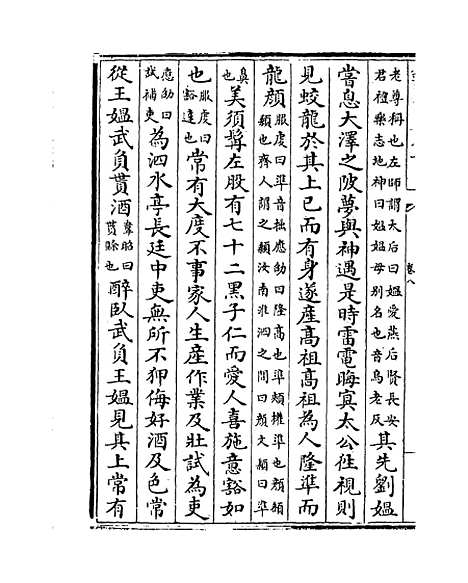 老尊稱也左師謂太后曰媼愛燕后賢長安
君禮樂志地神曰媼媼母别名也音烏老反
其先劉媼
嘗息大澤之陂夢與神遇是時雷電晦冥太公往視則
見蛟龍於其上已而有身遂產高祖高祖為人隆準而
龍顔
服虔曰準音拙應劭曰隆高也準頰權準也顔頟
顙也齊人謂之顙汝南淮泗之間曰顔文穎曰準
鼻也
美須髯左股有七十二黒子仁而愛人喜施意豁如
也
服虔曰
豁達也
常有大度不事家人生產作業及壯試為吏
應劭曰
試補吏
為泗水亭長廷中吏無所不狎侮好酒及色常
從王媼武負貰酒
韋昭曰
貰賒也
醉臥武負王媼見其上常有
卷八